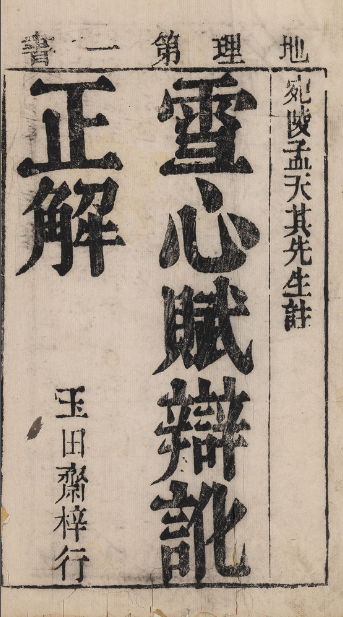 地理第一書
宛陵孟天其先生註
雪心賦辯訛
正解
玉田齋梓行